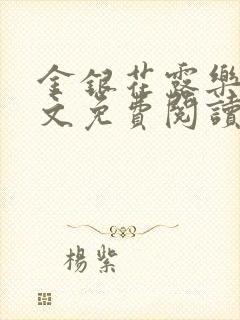 金銀花露樂
文免費閱讀
楊紫